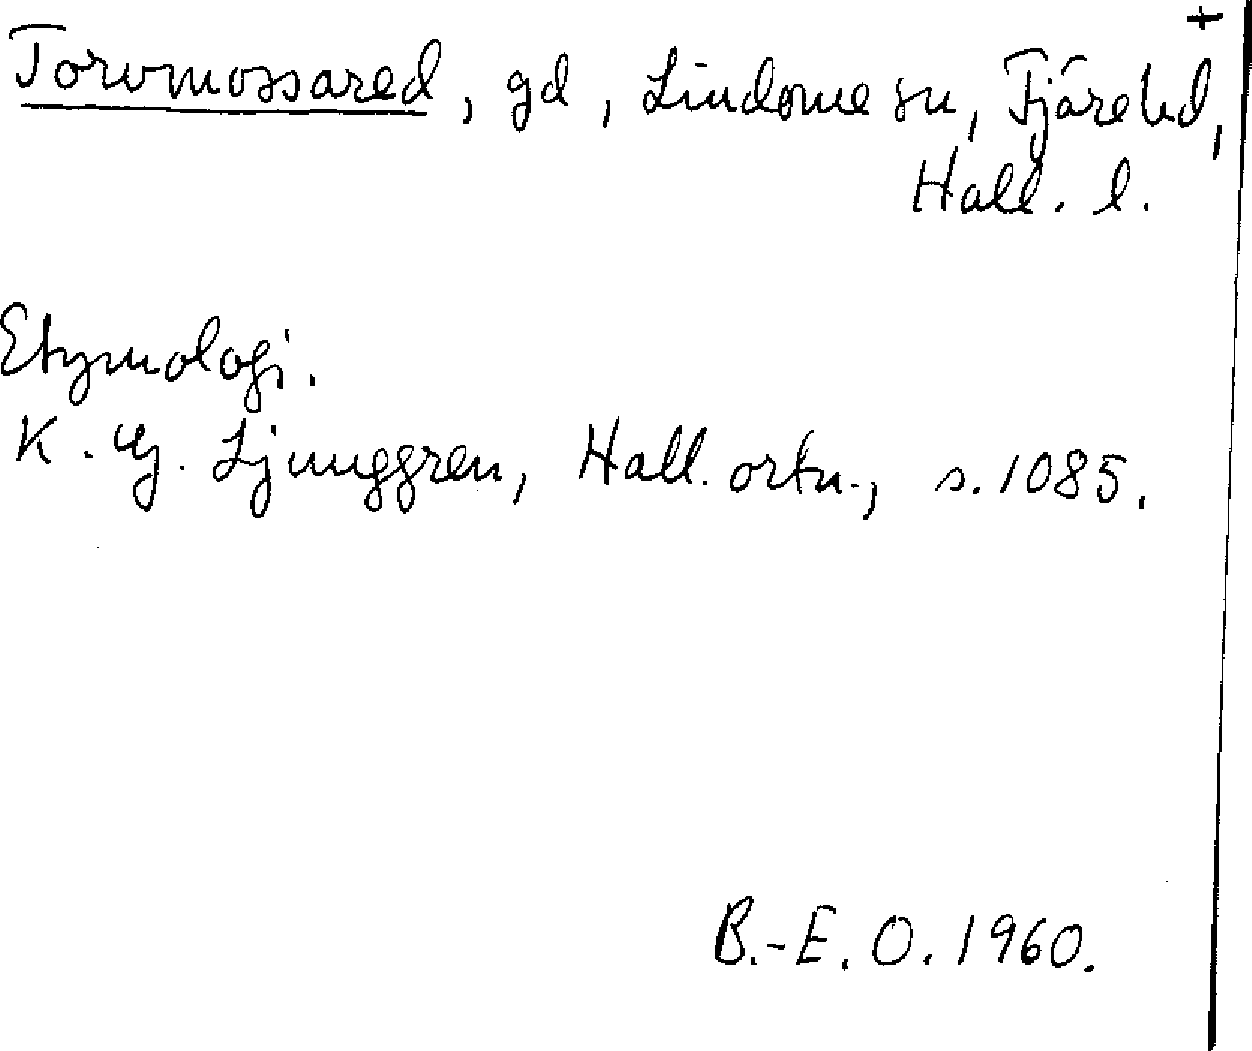 +
Torvmossared, gd, Lindome sn, Fjäre hd,
Hall. l.
Etymologi.
K. G. Ljunggren, Hall. ortn., s. 1085.
B.-E. O. 1960.